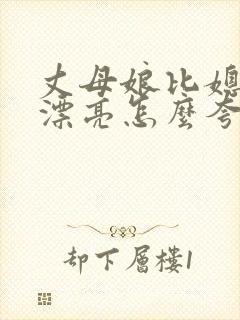 丈母娘比媳
漂亮怎麼夸
却下層樓1